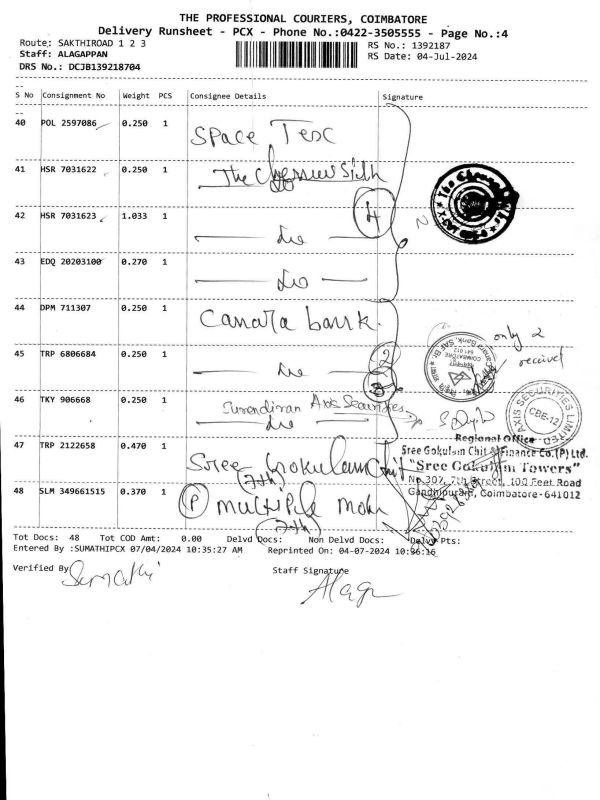 THE PROFESSIONAL COURIERS, COIMBATORE
Delivery Runsheet - PCX - Phone No.:0422-3505555 - Page No.:4
Route: SAKTHIROAD 1 2 3
RS No.: 1392187
Staff: ALAGAPPAN
RS Date: 04-Jul-2024
DRS No.: DCJB139218704
S No Consignment No Weight PCS Consignee Details Signature
40 POL 2597086 0.250 1 Space Tesc
41 HSR 7031622 0.250 1 The Chennai Silk
42 HSR 7031623 1.033 1 Do
4
43 EDQ 20203100 0.270 1 Do
44 DPM 711307 0.250 1 Canara bank.
only 2
45 TRP 6806684 0.250 1 Do
2
46 TKY 906668 0.250 1 Surendiran Axis Securities
Do
AXIS SECURITIES LIMITED
CBE-12
Regional Office
47 TRP 2122658 0.470 1 Sree Gokulam Chit
(7th)
Sree Gokulam Chit & Finance Co.(P) Ltd.
"Sree Gokulam Towers"
No.307, 7th Street, 100 Feet Road
Gandhipuram, Coimbatore-641012
48 SLM 349661515 0.370 1 P Multiple
(7th)
Tot Docs: 48 Tot COD Amt: 0.00 Delvd Docs: Non Delvd Docs: Delvy Pts:
Entered By :SUMATHIPCX 07/04/2024 10:35:27 AM Reprinted On: 04-07-2024 10:36:16
Verified By Sumathi
Staff Signature